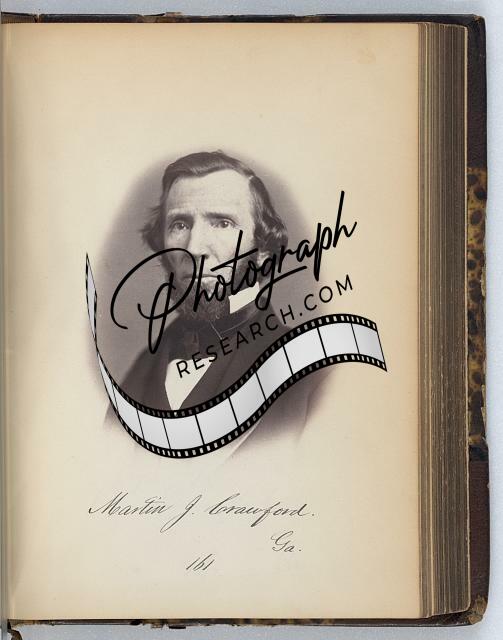 Photograph
RESEARCH.COM
Martin J. Crawford.
Ga.
161